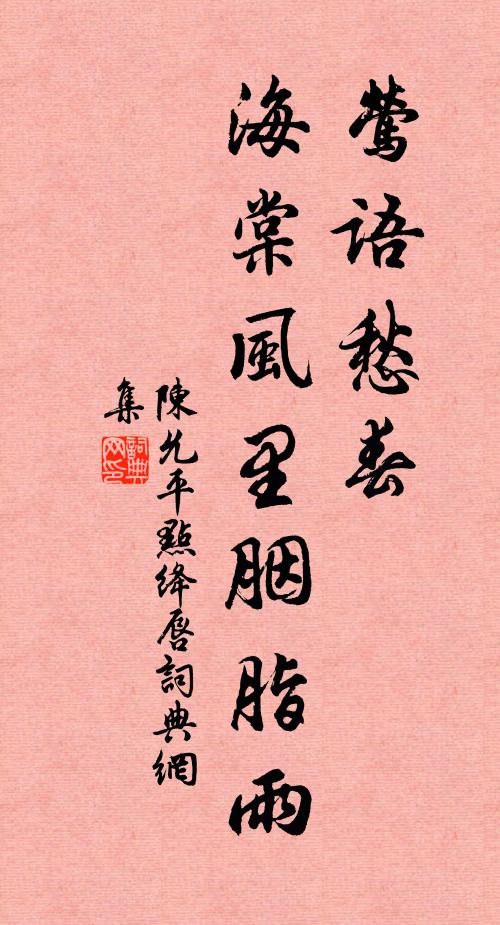 鶯語愁春
海棠風里胭脂雨
陳允平點绛唇詞典網
集
詞典
网印